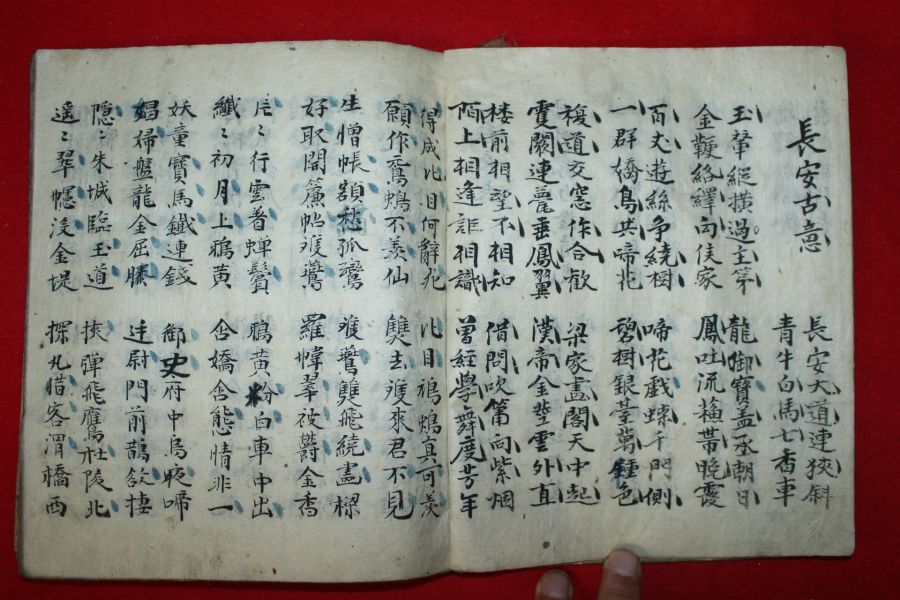 長安古意
長安大道連狹斜
青牛白馬七香車
玉輦縱橫過主第
金鞭絡繹向侯家
龍御寶盖承朝日
鳳吐流蘇帶晚霞
百丈遊絲爭繞樹
一群嬌鳥共啼花
啼花戲蝶千門側
碧樹銀臺萬種色
複道交窓作合歡
雙闕連甍垂鳳翼
梁家畫閣天中起
漢帝金莖雲外直
樓前相望不相知
陌上相逢詎相識
借問吹簫向紫烟
曾經學舞度芳年
得成比目何辭死
願作鴛鴦不羨仙
比目鴛鴦真可羨
雙去雙來君不見
生憎帳額愁孤鸞
好取開簾帖雙鸞
雙鸞雙飛繞畫樑
羅幃翠被鬱金香
片〻行雲着蟬鬢
纖〻初月上鴉黃
鴉黃粉白車中出
含嬌含態情非一
妖童寶馬鐵連錢
娼婦盤龍金屈膝
御史府中烏夜啼
廷尉門前鵲欲棲
隱〻朱城臨玉道
遙〻翠幰沒金堤
挾彈飛鷹杜陵北
探丸借客渭橋西